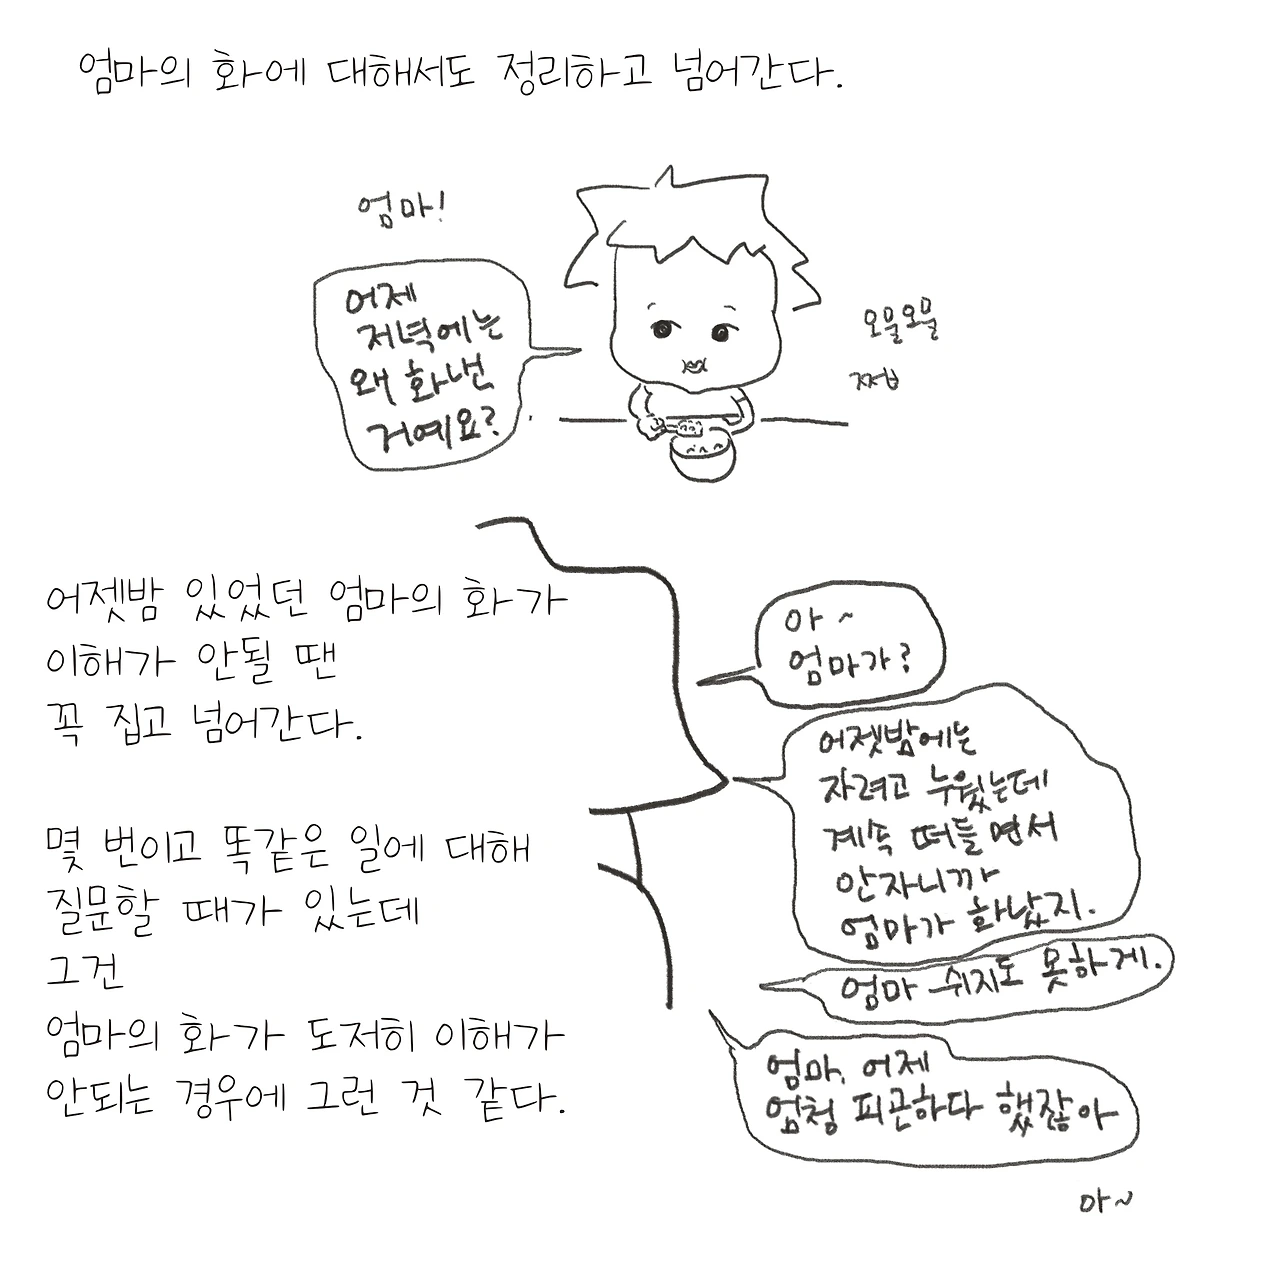 엄마의 화에 대해서도 정리하고 넘어간다.
엄마!
어제
저녁에는
왜 화낸
거예요?
오물오물
쩝
어젯밤 있었던 엄마의 화가
이해가 안될 땐
꼭 집고 넘어간다.
아~
엄마가?
어젯밤에는
자려고 누웠는데
계속 떠들면서
안자니까
엄마가 화났지.
엄마 쉬지도 못하게.
엄마, 어제
엄청 피곤하다 했잖아
아~
몇 번이고 똑같은 일에 대해
질문할 때가 있는데
그건
엄마의 화가 도저히 이해가
안되는 경우에 그런 것 같다.